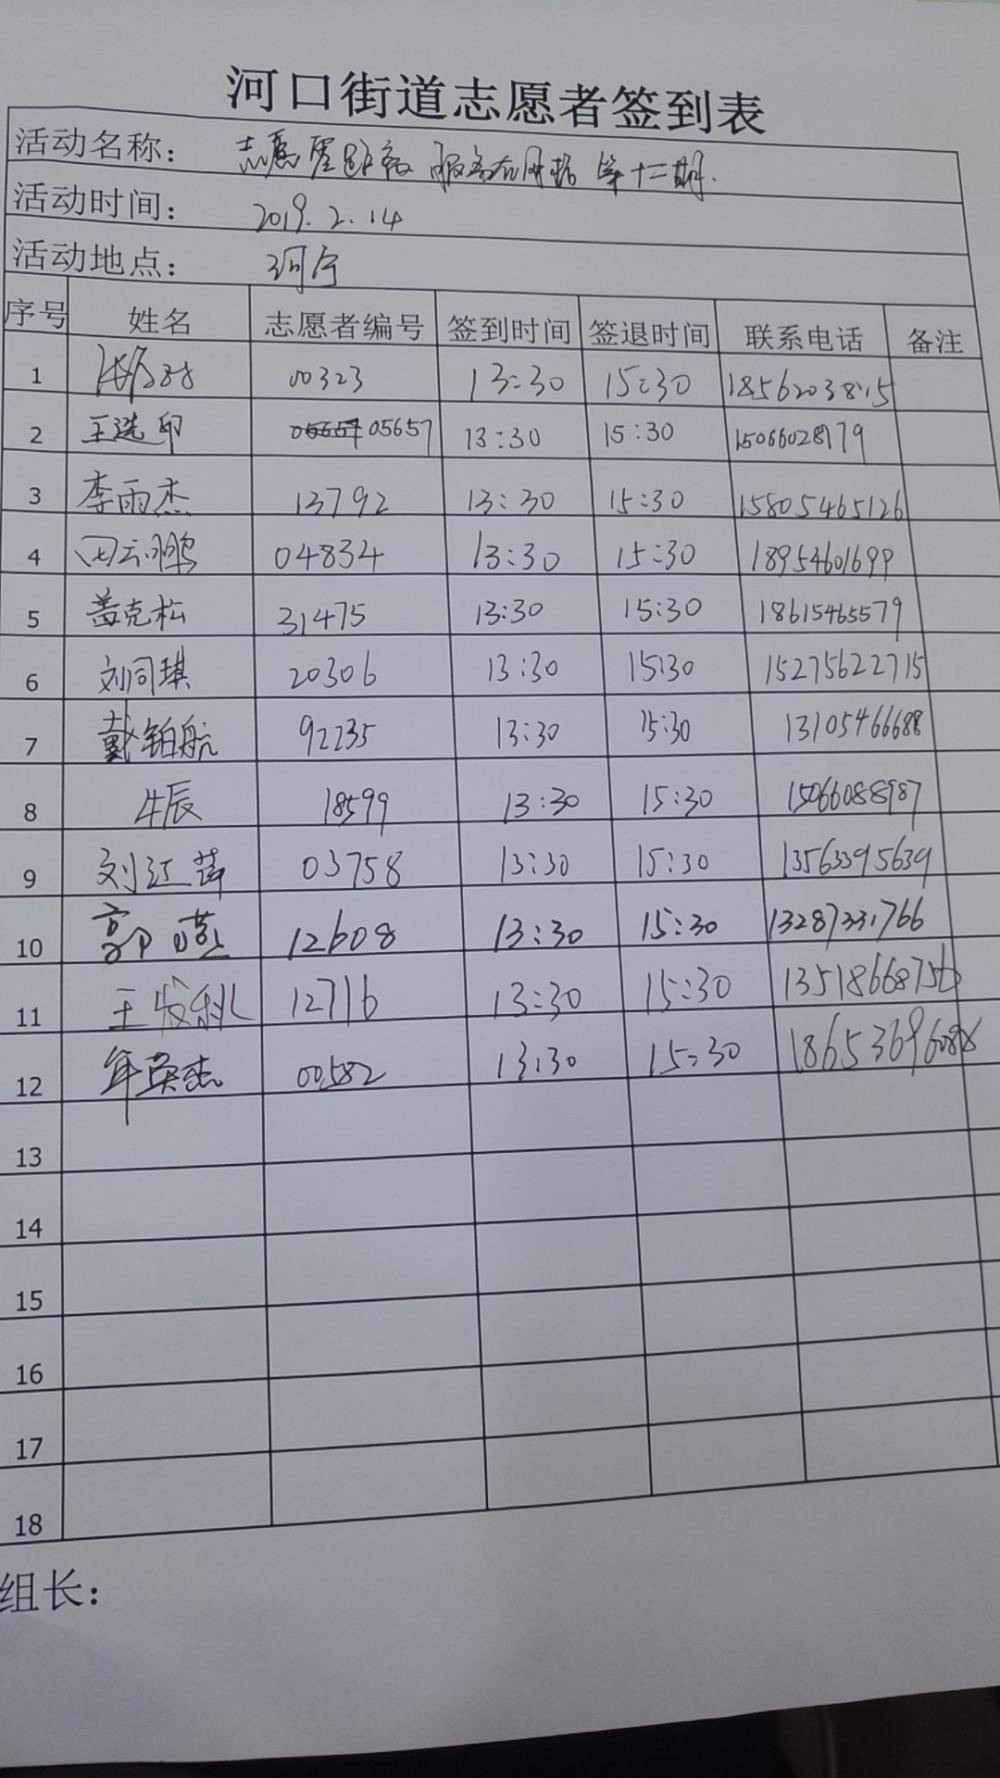 河口街道志愿者签到表
活动名称： 志愿 服务在网格 第十二期.
活动时间： 2019.2.14
活动地点： 河宁
序号 姓名 志愿者编号 签到时间 签退时间 联系电话 备注
1 00323 13:30 15:30 18562038815
2 王选印 05657 13:30 15:30 15066028179
3 李雨杰 13792 13:30 15:30 15805465126
4 田云鹏 04834 13:30 15:30 18954601699
5 盖克松 31475 13:30 15:30 18615465579
6 刘同琪 20306 13:30 15:30 15275622715
7 戴铂航 92235 13:30 15:30 13105466688
8 牛辰 18599 13:30 15:30 15066088987
9 刘江苗 03758 13:30 15:30 13563395639
10 郭燕 12608 13:30 15:30 13287331766
11 王发秋 12716 13:30 15:30 13518668756
12 年英杰 00582 13:30 15:30 18653696088
13
14
15
16
17
18
组长：